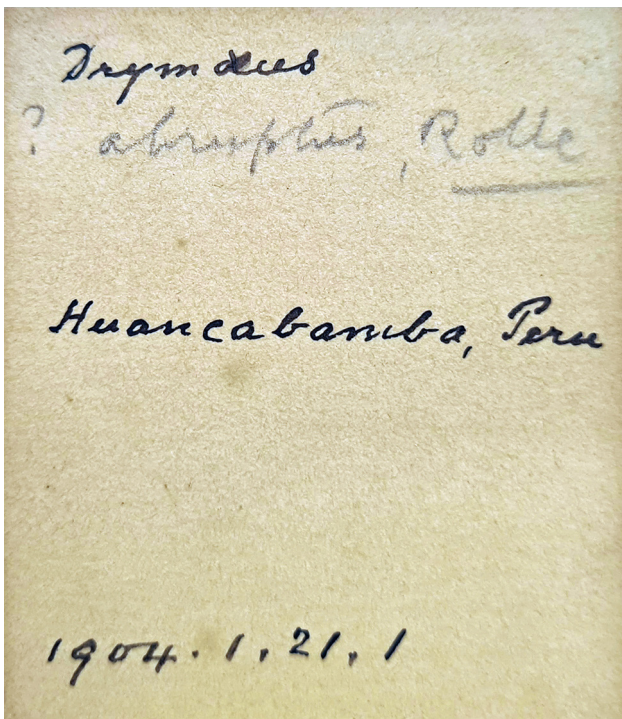 Drymæus
? abruptus, Rolle
Huancabamba, Peru
1904.1.21.1